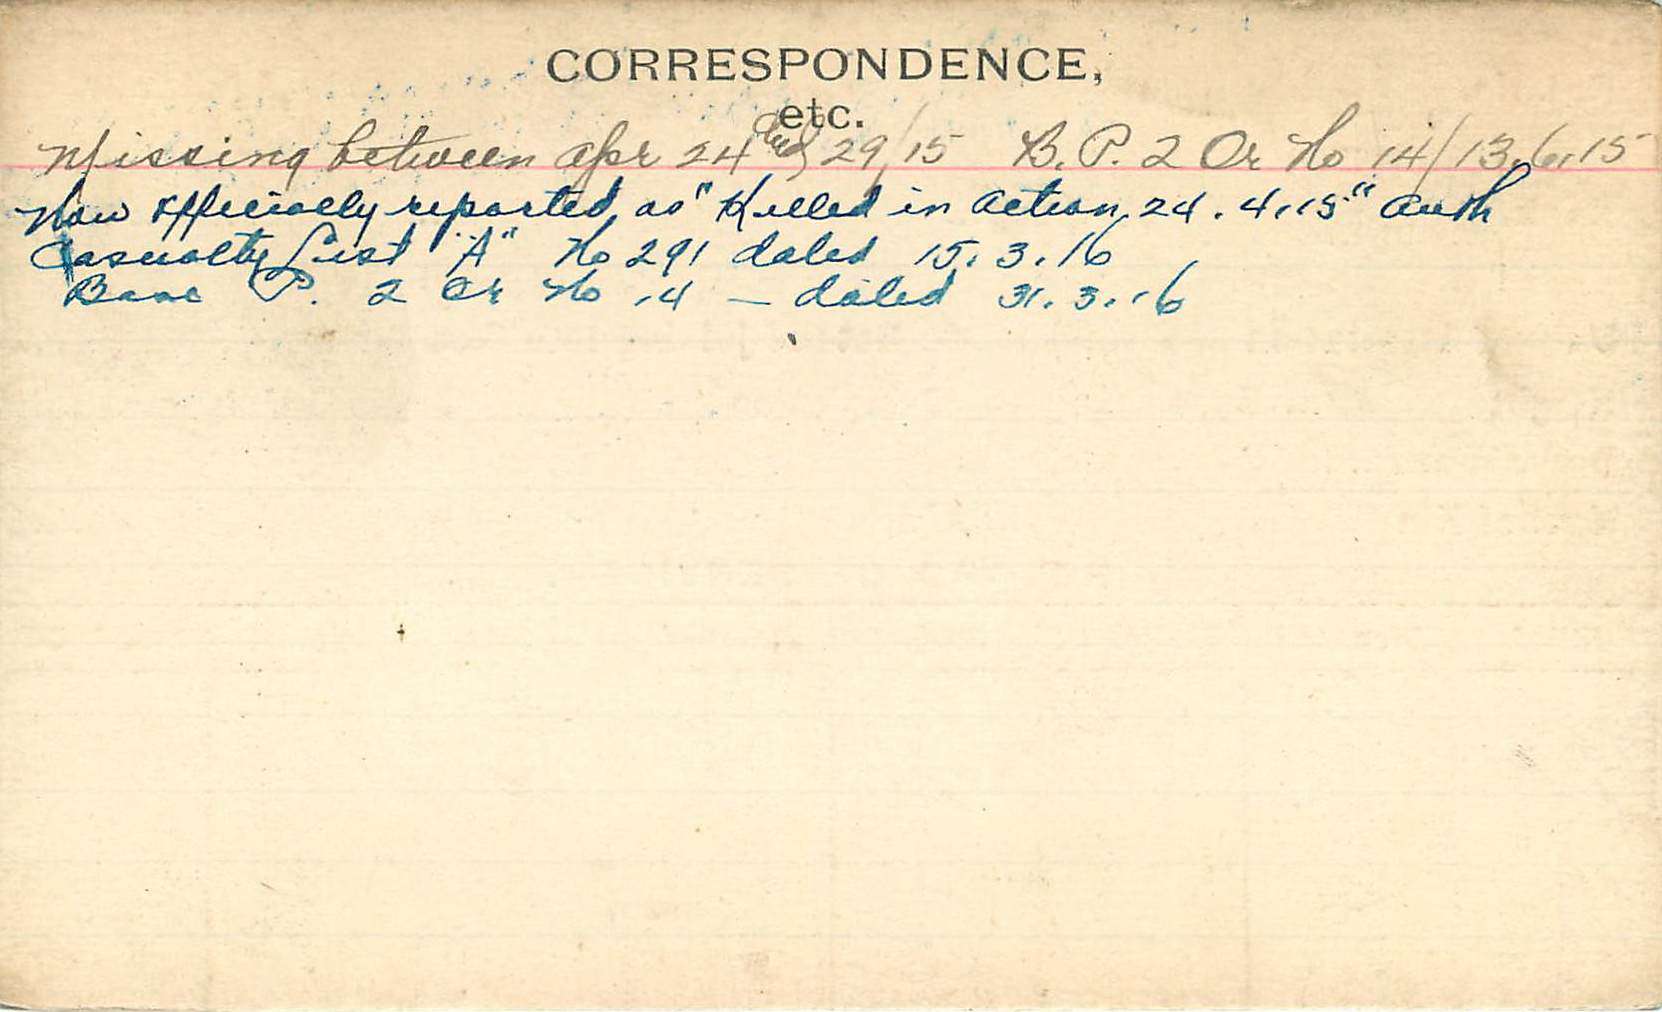 CORRESPONDENCE,
etc.
Missing between Apr 24 and 29/15 B. P. 2 Or No 14/13.6.15
Now officially reported as "Killed in Action, 24.4.15" Auth
Casualty List "A" No 291 dated 15.3.16
Base P. 2 Or No 14 – dated 31.3.16